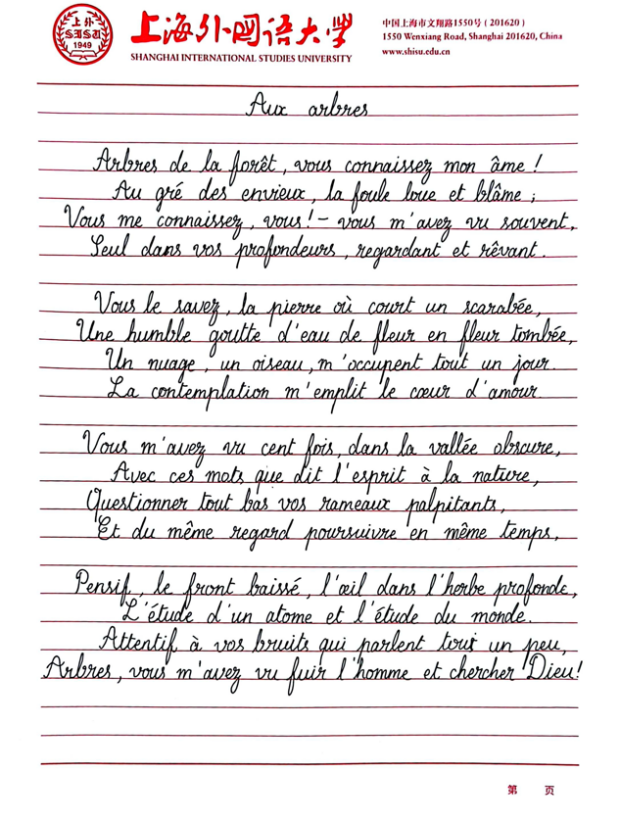 上外
SISU
1949
上海外国语大学
SHANGHAI INTERNATIONAL STUDIES UNIVERSITY
中国上海市文翔路1550号(201620)
1550 Wenxiang Road, Shanghai 201620, China
www.shisu.edu.cn
Aux arbres
Arbres de la forêt, vous connaissez mon âme !
Au gré des envieux, la foule loue et blâme ;
Vous me connaissez, vous! – vous m'avez vu souvent,
Seul dans vos profondeurs, regardant et rêvant.
Vous le savez, la pierre où court un scarabée,
Une humble goutte d'eau de fleur en fleur tombée,
Un nuage, un oiseau, m'occupent tout un jour.
La contemplation m'emplit le cœur d'amour.
Vous m'avez vu cent fois, dans la vallée obscure,
Avec ces mots que dit l'esprit à la nature,
Questionner tout bas vos rameaux palpitants,
Et du même regard poursuivre en même temps,
Pensif, le front baissé, l'œil dans l'herbe profonde,
L'étude d'un atome et l'étude du monde.
Attentif à vos bruits qui parlent tout un peu,
Arbres, vous m'avez vu fuir l'homme et chercher Dieu!
第 页